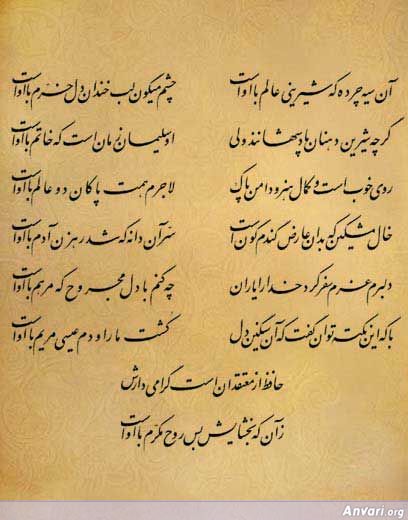 آن سیه چرده که شیرینی عالم با اوست چشم میگون لب خندان دل خرّم با اوست
گرچه شیرین دهنان پادشهانند ولی او سلیمان زمان است که خاتم با اوست
روی خوب است و کمال هنر و دامن پاک لاجرم همت پاکان دو عالم با اوست
خال مشکین که بدان عارض گندم گون است سرّ آن دانه که شد رهزن آدم با اوست
دلبرم عزم سفر کرد خدا را یاران چه کنم با دل مجروح که مرهم با اوست
با که این نکته توان گفت که آن سنگین دل کشت ما را و دم عیسی مریم با اوست
حافظ از معتقدان است گرامی دارش
زآن که بخشایش بس روح مکرّم با اوست
Anvari.org